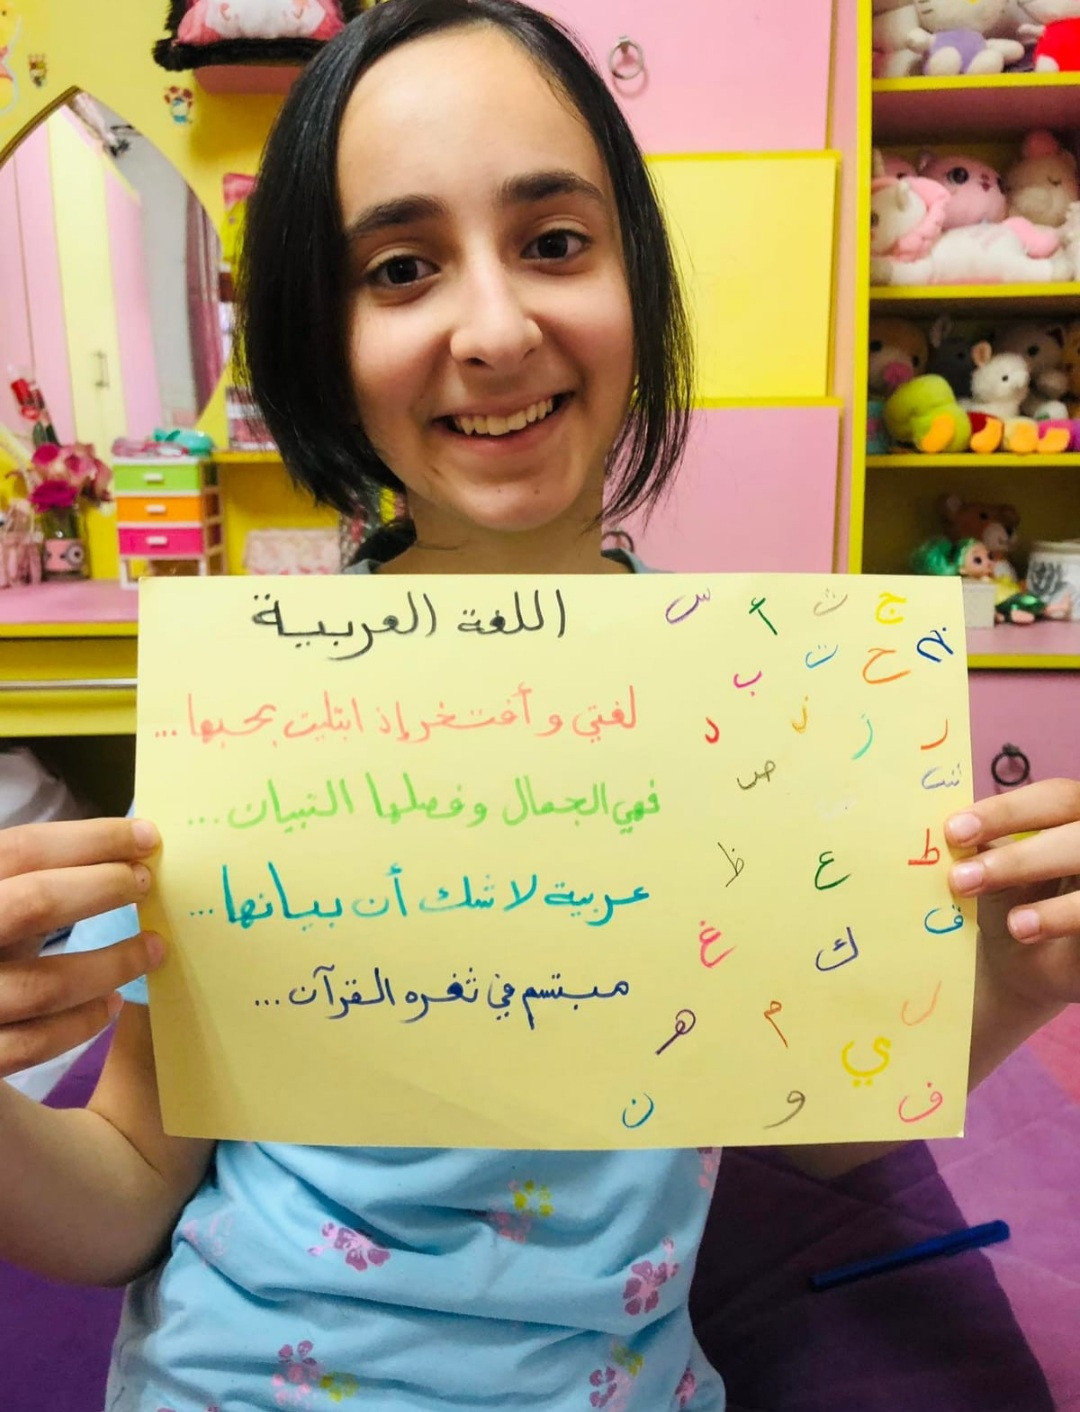 اللغة العربية
لغتي وأفتخر إذ ابتليت بحبها...
فهي الجمال وفصلها التبيان...
عربية لا شك أن بيانها...
مبتسم في ثغره القرآن...
ج ث أ س
ح ت ب
ر ز ذ د
ش ص
ط ع ظ
ق ك غ
ل م هـ
ي
ف و ن